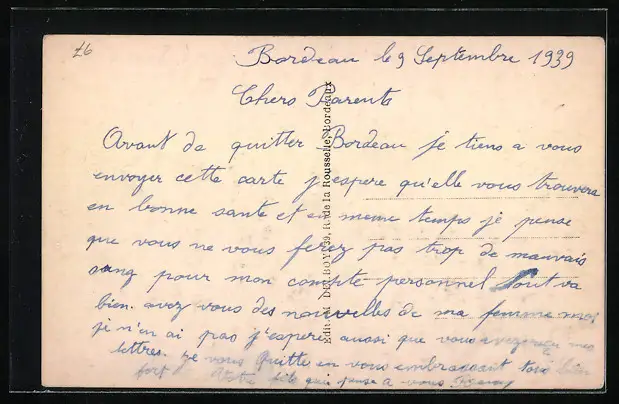 26
Bordeau le 9 Septembre 1939
Chers Parents
Avant de quitter Bordeau je tiens a vous
envoyer cette carte j'espere qu'elle vous trouvera
en bonne sante et en meme temps je pense
que vous ne vous ferez pas trop de mauvais
sang pour mon compte personnel tout va
bien. avez vous des nouvelles de ma femme moi
je n'en ai pas j'espere aussi que vous mes
lettres. je vous quitte en vous embrassant tous bien
fort Votre fils qui pense a vous
Edition DELBOY, 39, R. de la Rousselle, Bordeaux